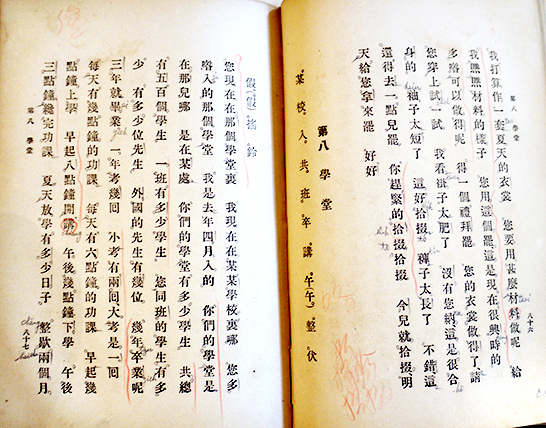 第八 學堂 八十六
我打算作一套夏天的衣裳 您要用甚麼材料做呢 給
我瞧瞧材料的樣子 您用這個罷這是現在很興時的
多喒可以做得呢 得一個禮拜罷 您的衣裳做得了請
您穿上試一試 我看褂子太肥了 沒有您納這是很合
身的 袖子太短了 這好拾掇 褲子太長了 不錯這
還得去一點兒罷 你趕緊的拾掇拾掇 今兒就拾掇明
天給您拿來罷 好好
第八 學堂
某 校 入 共 班 卒 講 午(午) 整 伏
假(假) 搖 鈴
您現在在那個學堂裏 我現在在某某學校裏哪 您多
喒入的那個學堂 我是去年四月入的 你們的學堂是
在那兒哪 是在某處 你們的學堂有多少學生 共總
有五百個學生 一班有多少學生 您同班的學生有多
少 有多少位先生 外國的先生有幾位 幾年卒業呢
三年就畢業 一年考幾回 小考有兩回大考是一回
每天有幾點鐘的功課 每天有六點鐘的功課 早起幾
點鐘上學 早起八點鐘開講 午後幾點鐘下學 午後
三點鐘纔完功課 夏天放學有多少日子 整歇兩個月
第八 學堂 八十七